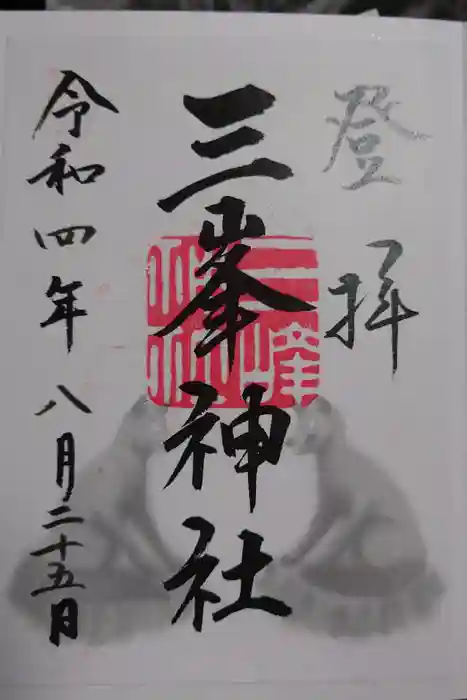 登拝
三峯神社
令和四年八月二十五日